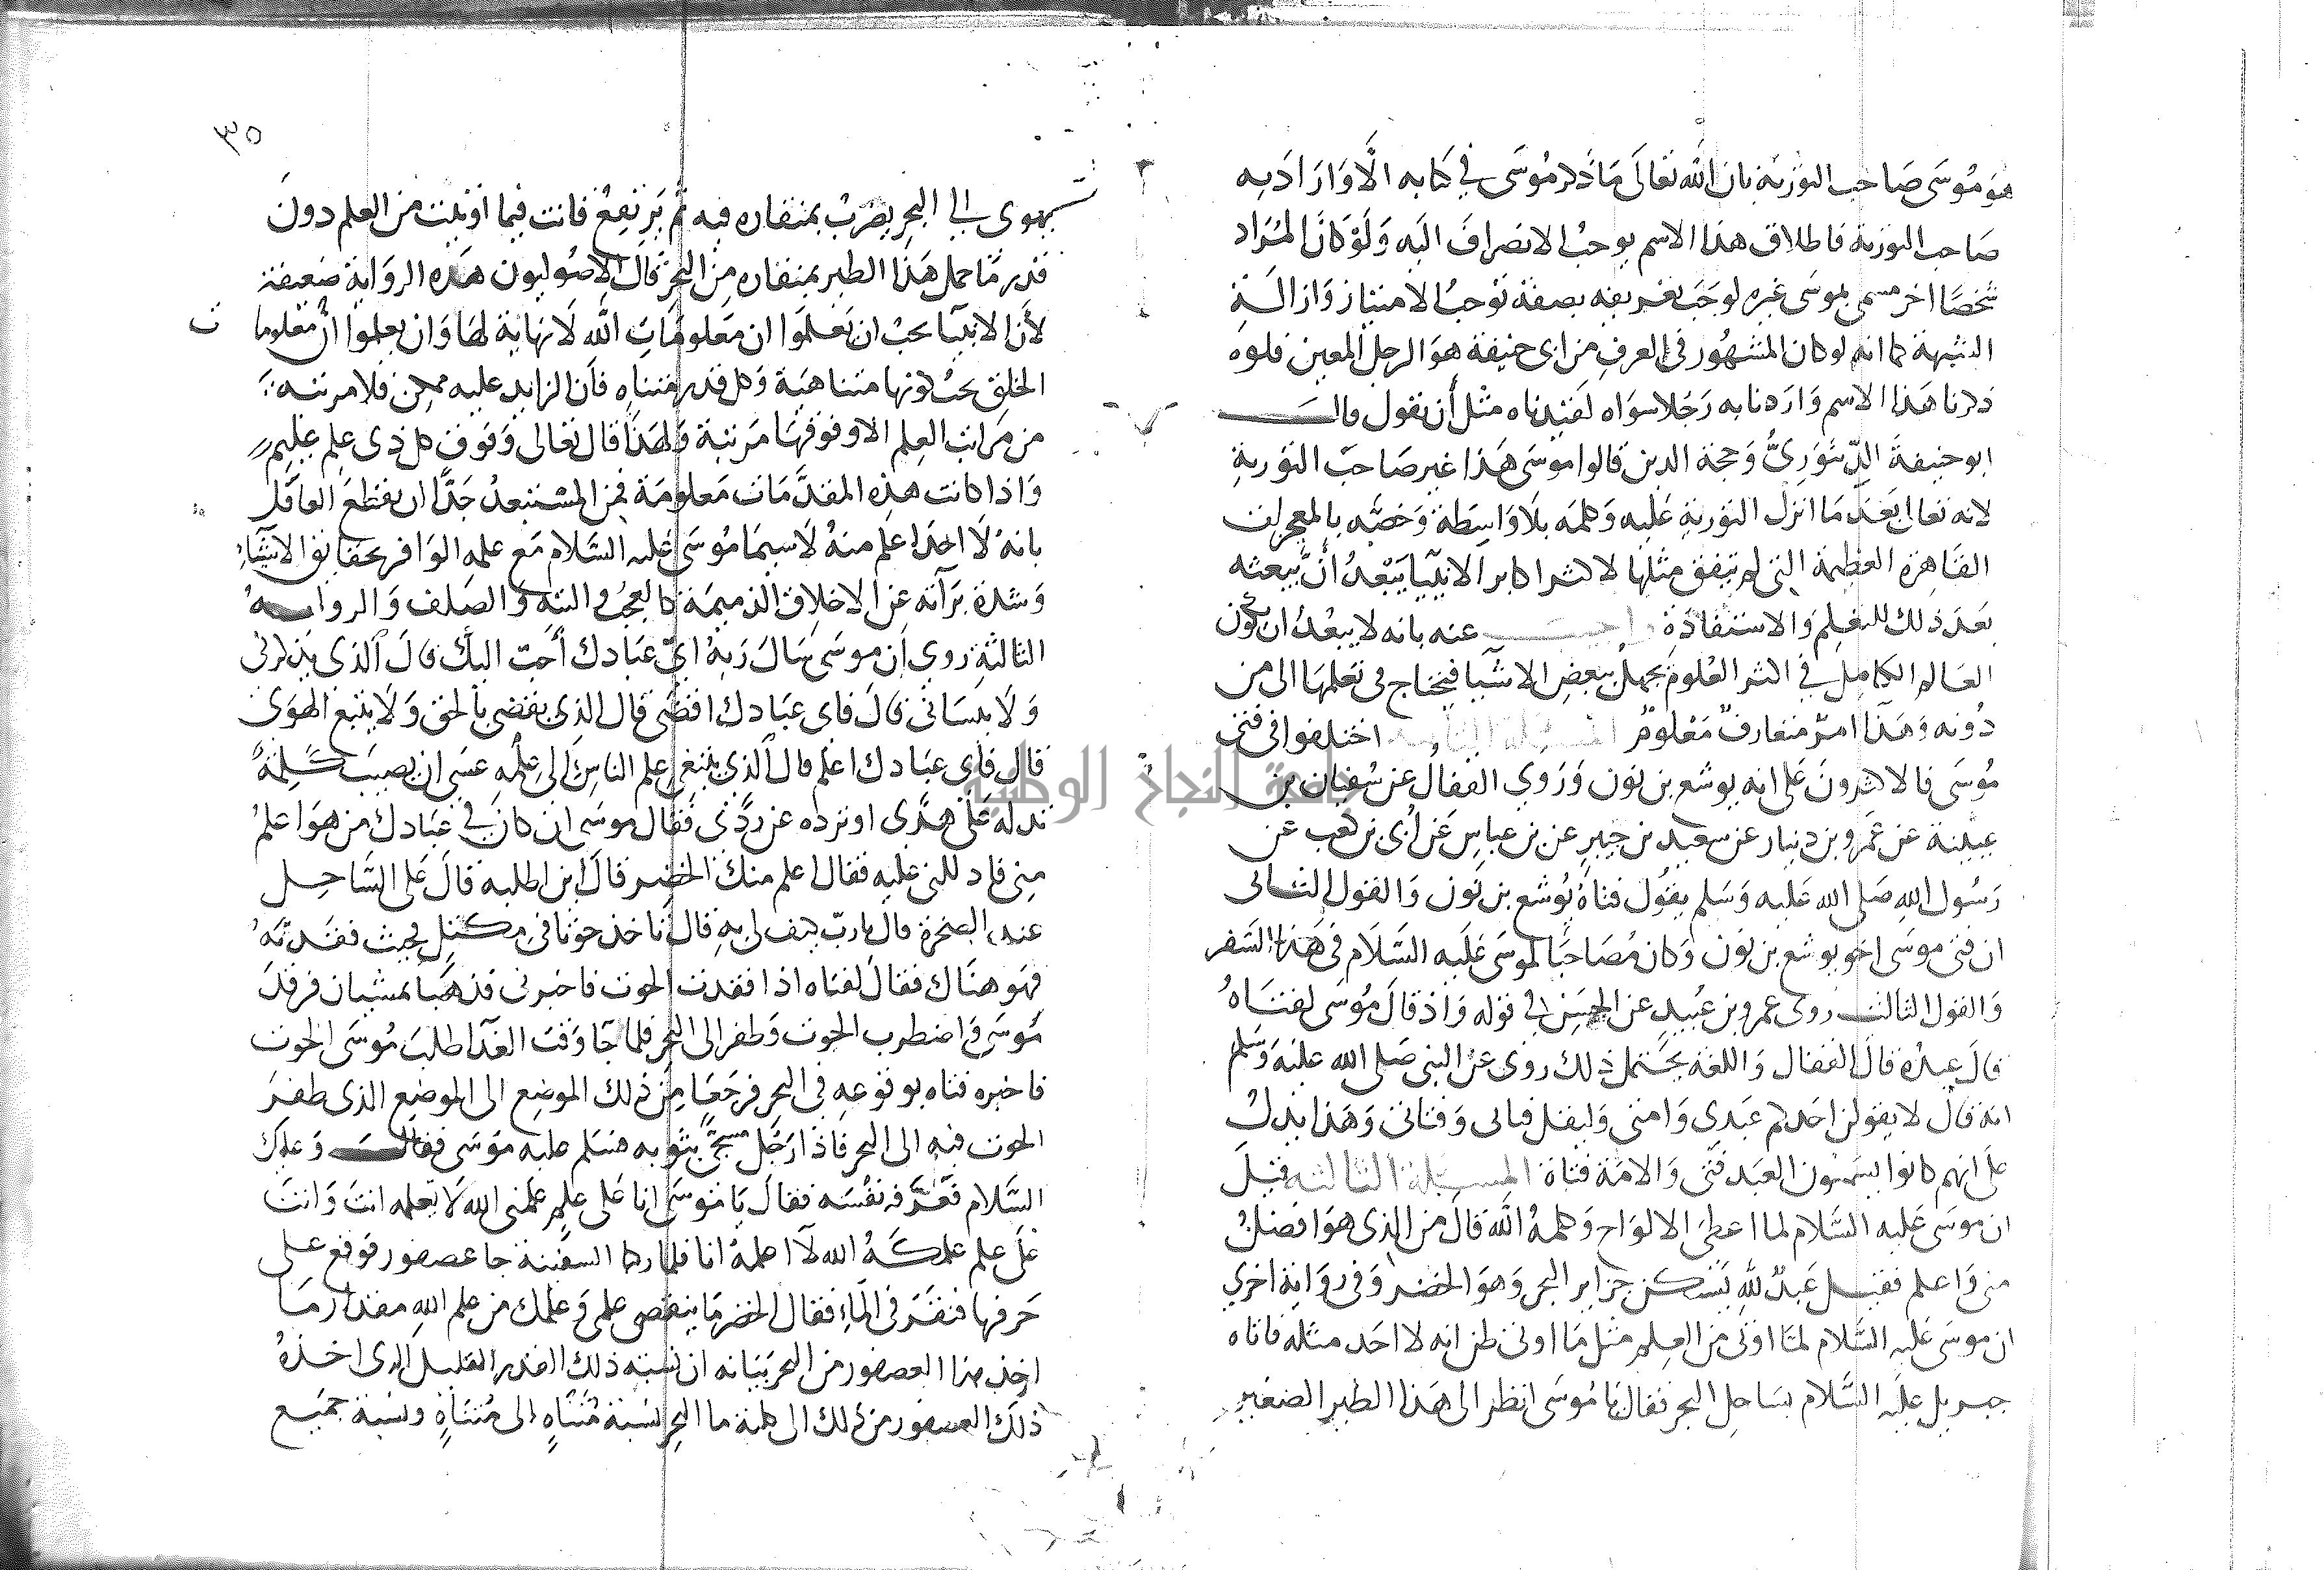 هو موسى صاحب التورية بان الله تعالى ما ذكر موسى في كتابه الا وارادبه
صاحب التورية فاطلاق هذا الاسم يوجب الانصراف اليه ولو كان المراد
شخصا اخر مسمى بموسى غيره لوجب تعريفه بصفة توجب الامتياز وازالة
الشبهة كما انه لو كان المشهور في العرف من ابى حنيفة هو الرجل المعين فلوه
ذكرنا هذا الاسم واردنا به رجلا سواه لقيدناه مثل أن نقول قال
ابو حنيفة الدينوري وحجة الدين قالوا موسى هذا غير صاحب التورية
لانه تعالى بعد ما انزل التورية عليه وكلمه بلا واسطة وخصه بالمعجزات
القاهرة العظيمة التى لم يتفق مثلها لاكثر اكابر الانبيا يبعد أن يبعثه
بعد ذلك للتعلم والاستفادة واجيب عنه بانه لا يبعد ان يكون
العالم الكامل في اكثر العلوم يجهل بعض الاشيا فيحتاج فى تعلمها الى من
دونه وهذا امر متعارف معلوم المسئلة الثانية اختلفوا فى فتى
موسى فالاكثرون على انه يوشع بن نون وروي القفال عن سفيان بن
عيينة عن عمرو بن دينار عن سعيد بن جبير عن بن عباس عن أبى بن كعب عن
رسول الله صلى الله عليه وسلم يقول فتاه يوشع بن نون والقول الثانى
ان فتى موسى اخو يوشع بن نون وكان مصاحبا لموسى عليه السلام في هذا السفر
والقول الثالث روى عمرو بن عبيد عن الحسن في قوله واذ قال موسى لفتاه
قال عبده قال القفال واللغة يحتمل ذلك روى عن النبى صلى الله عليه وسلم
انه قال لا يقولن احدكم عبدي وامتى وليقل فتاى وفتاتى وهذا يدل
على انهم كانوا يسمون العبد فتى والامة فتاة المسئلة الثالثه قيل
ان موسى عليه السلام لما اعطى الالواح وكلمه الله قال من الذى هو افضل
منى واعلم فقيل عبد لله يسكن جزاير البحر وهو الخضر وفى رواية اخري
ان موسى عليه السلام لما اوتى من العلم مثل ما اوتى ظن انه لا احد مثله فاتاه
جبريل عليه السلام بساحل البحر فقال يا موسى انظر الى هذا الطير الصغير
٣٥
يهوى الى البحر يضرب بمنقاره فيه ثم يرتفع فانت فيما اوتيت من العلم دون
قدر ما حمل هذا الطير بمنقاره من البحر قال الاصوليون هذه الرواية ضعيفة
لأن الانبيا يجب ان يعلموا ان معلومات الله لا نهاية لها وان يعلموا أن معلومات
الخلق يجب كونها متناهية وكل قدر متناه فان الزايد عليه ممكن فلا مرتبة
من مراتب العلم الا وفوقها مرتبة ولهذا قال تعالى وفوق كل ذى علم عليم
واذا كانت هذه المقدمات معلومة فمن المستبعد جدا ان يقطع العاقل
بانه لا احد اعلم منه لا سيما موسى عليه السلام مع علمه الوافر بحقايق الاشياء
وشدة برآته عن الاخلاق الذميمة كالعجب والتيه والصلف والرواية
الثالثة روي ان موسى سال ربه اي عبادك أحب اليك قال الذى يذكرنى
ولا ينسانى قال فاى عبادك اقضى قال الذى يقضى بالحق ولا يتبع الهوى
قال فاى عبادك اعلم قال الذي يبتغي علم الناس الى علمه عسى ان يصيب كلمة
تدله على هدى او ترده عن ردى فقال موسى ان كان في عبادك من هو اعلم
منى فادللنى عليه فقال اعلم منك الخضر قال اين اطلبه قال على الساحل
عند الصخرة قال يارب كيف لى به قال تاخذ حوتا فى مكتل فحيث فقدته
فهو هناك فقال لفتاه اذا فقدت الحوت فاخبرنى فذهبا يمشيان فرقد
موسى فاضطرب الحوت وطفر الى البحر فلما جا وقت الغدا طلب موسى الحوت
فاخبره فتاه بوقوعه في البحر فرجعا من ذلك الموضع الى الموضع الذى طفر
الحوت فيه الى البحر فاذا رجل مسجى بثوبه فسلم عليه موسى فقال وعليك
السلام فعرفه نفسه فقال يا موسى انا على علم علمنى الله لا تعلمه انت وانت
على علم علمكه الله لا اعلمه انا فلما ركبا السفينة جا عصفور فوقع على
حرفها فنقر فى الماء فقال الخضر ما ينقص علمى وعلمك من علم الله مقدار ما
اخذ هذا العصفور من البحر بيانه ان نسبة ذلك القدر القليل الذى اخذه
ذلك العصفور من ذلك الى كلية ما البحر نسبة متناه الى متناه ونسبة جميع
جامعة النجاح الوطنية